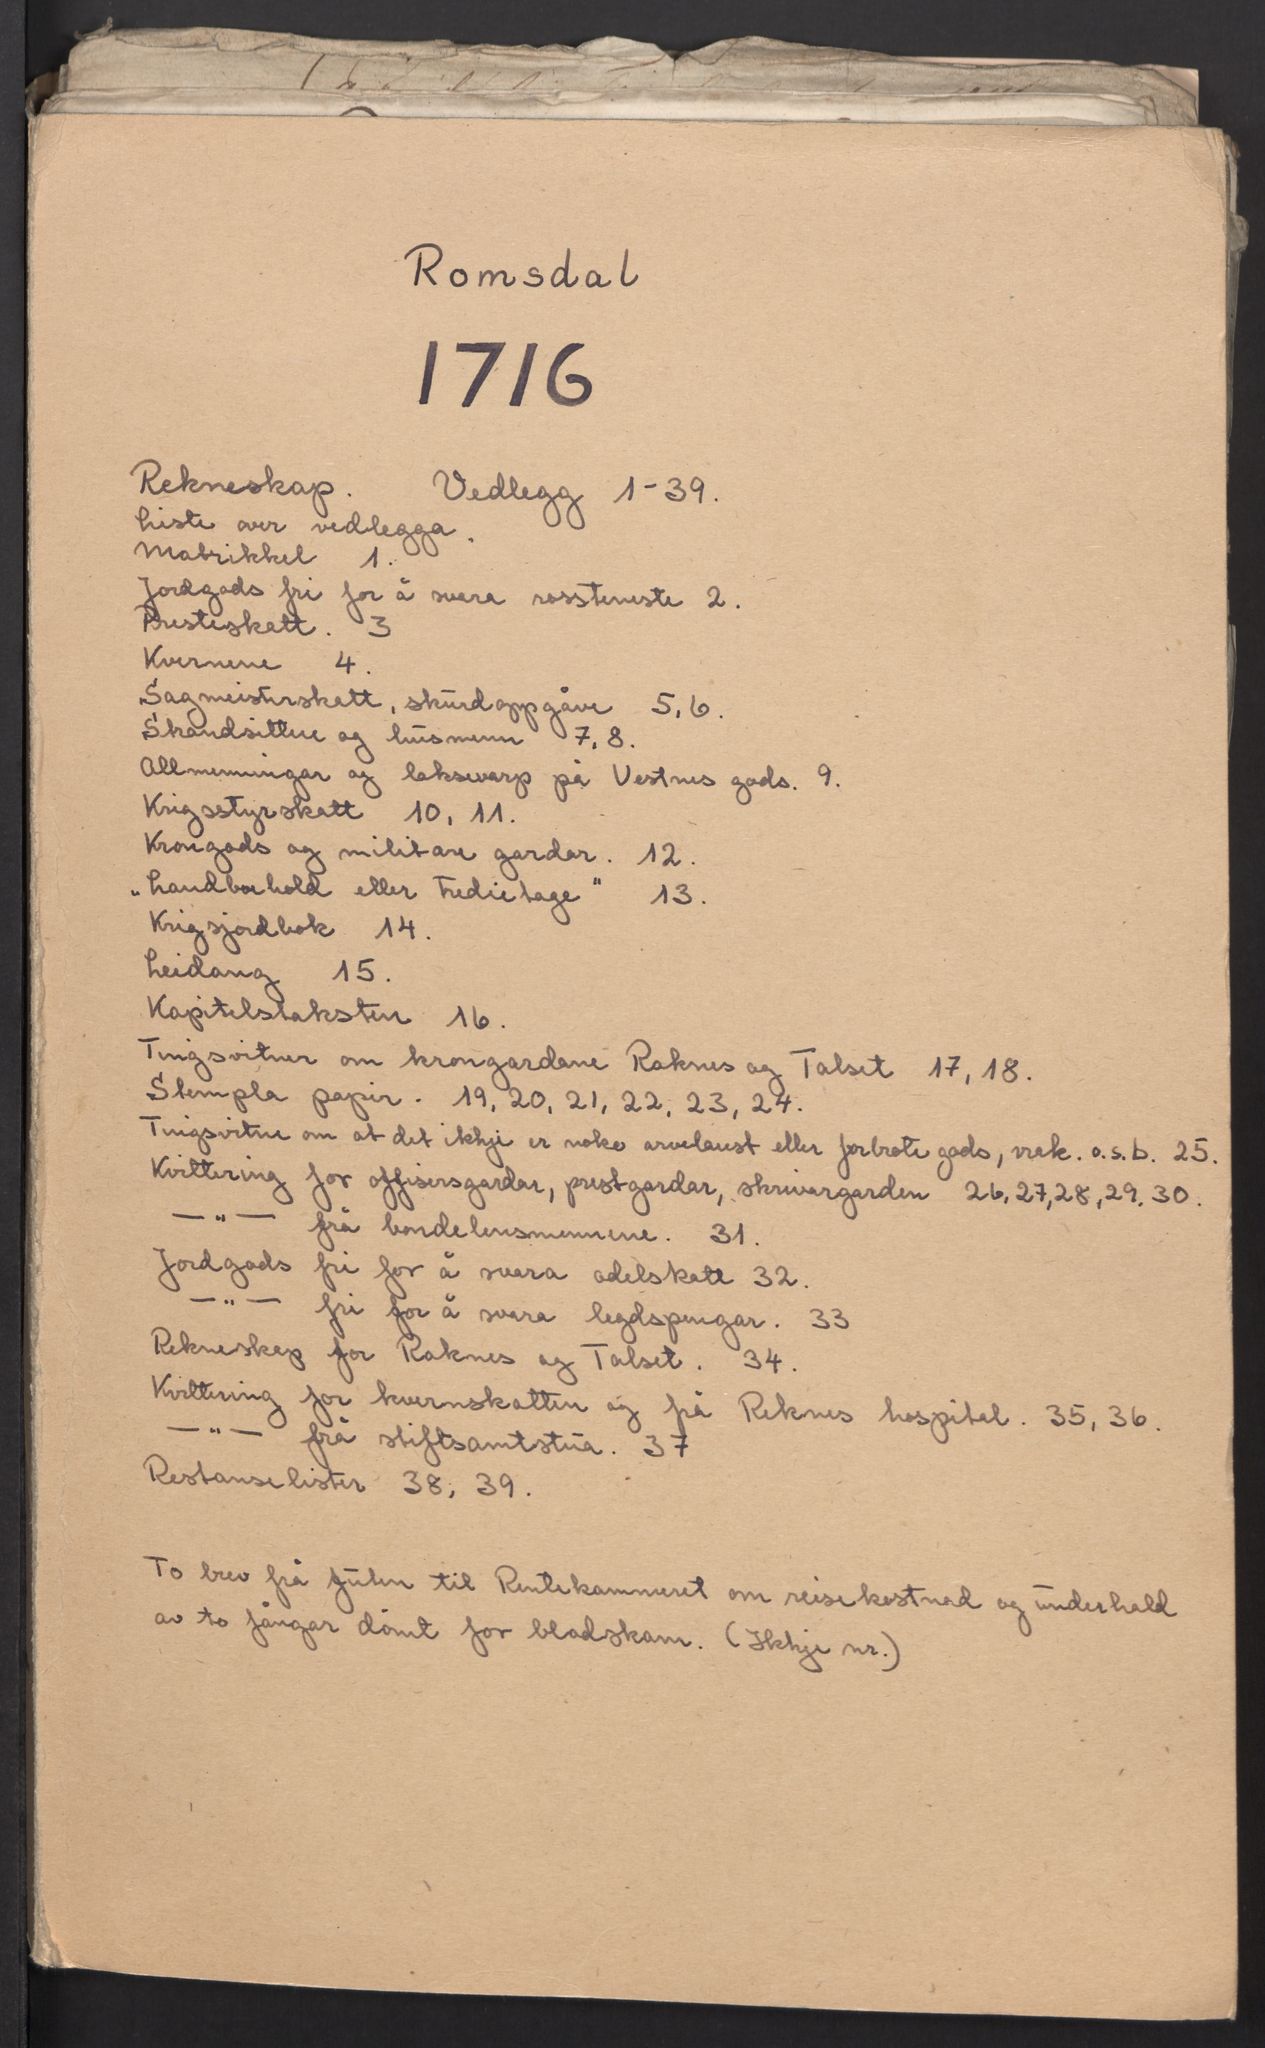 Romsdal
1716
Rekneskap. Vedlegg 1-39.
Liste over vedlegga.
Matrikkel 1.
Jordgods fri for å svara rossteneste 2.
Presteskatt. 3
Kvernene 4.
Sagmeisterskatt, skurdoppgåve 5,6.
Strandsittere og husmenn 7,8.
Allmenningar og laksevarp på Vestnes gods. 9.
Krigsstyrskatt 10, 11.
Krongods og militære gardar. 12.
„Landborhold eller Tredietage" 13.
Krigsjordbok 14.
Leidang 15.
Kapitelstaksten 16.
Tingsvitner om krongardane Raknes og Talset 17, 18.
Stempla papir. 19, 20, 21, 22, 23, 24.
Tingsvitne om at det ikkje er noko arvelaust eller forbrote gods, vrak. o.s.b. 25.
Kvittering for offisersgardar, prestgardar, skrivargarden 26, 27, 28, 29. 30.
—"— frå bondelensmennene. 31.
Jordgods fri for å svara odelskatt 32.
—"— fri for å svara legdspengar. 33
Rekneskap for Raknes og Talset. 34.
Kvittering for kvernskatten og på Reknes hospital. 35, 36.
—"— frå stiftsamtstua. 37
Restanselister 38, 39.
To brev frå futen til Rentekammeret om reisekostnad og underhald
av to fångar dømt for blodskam. (Ikkje nr.)